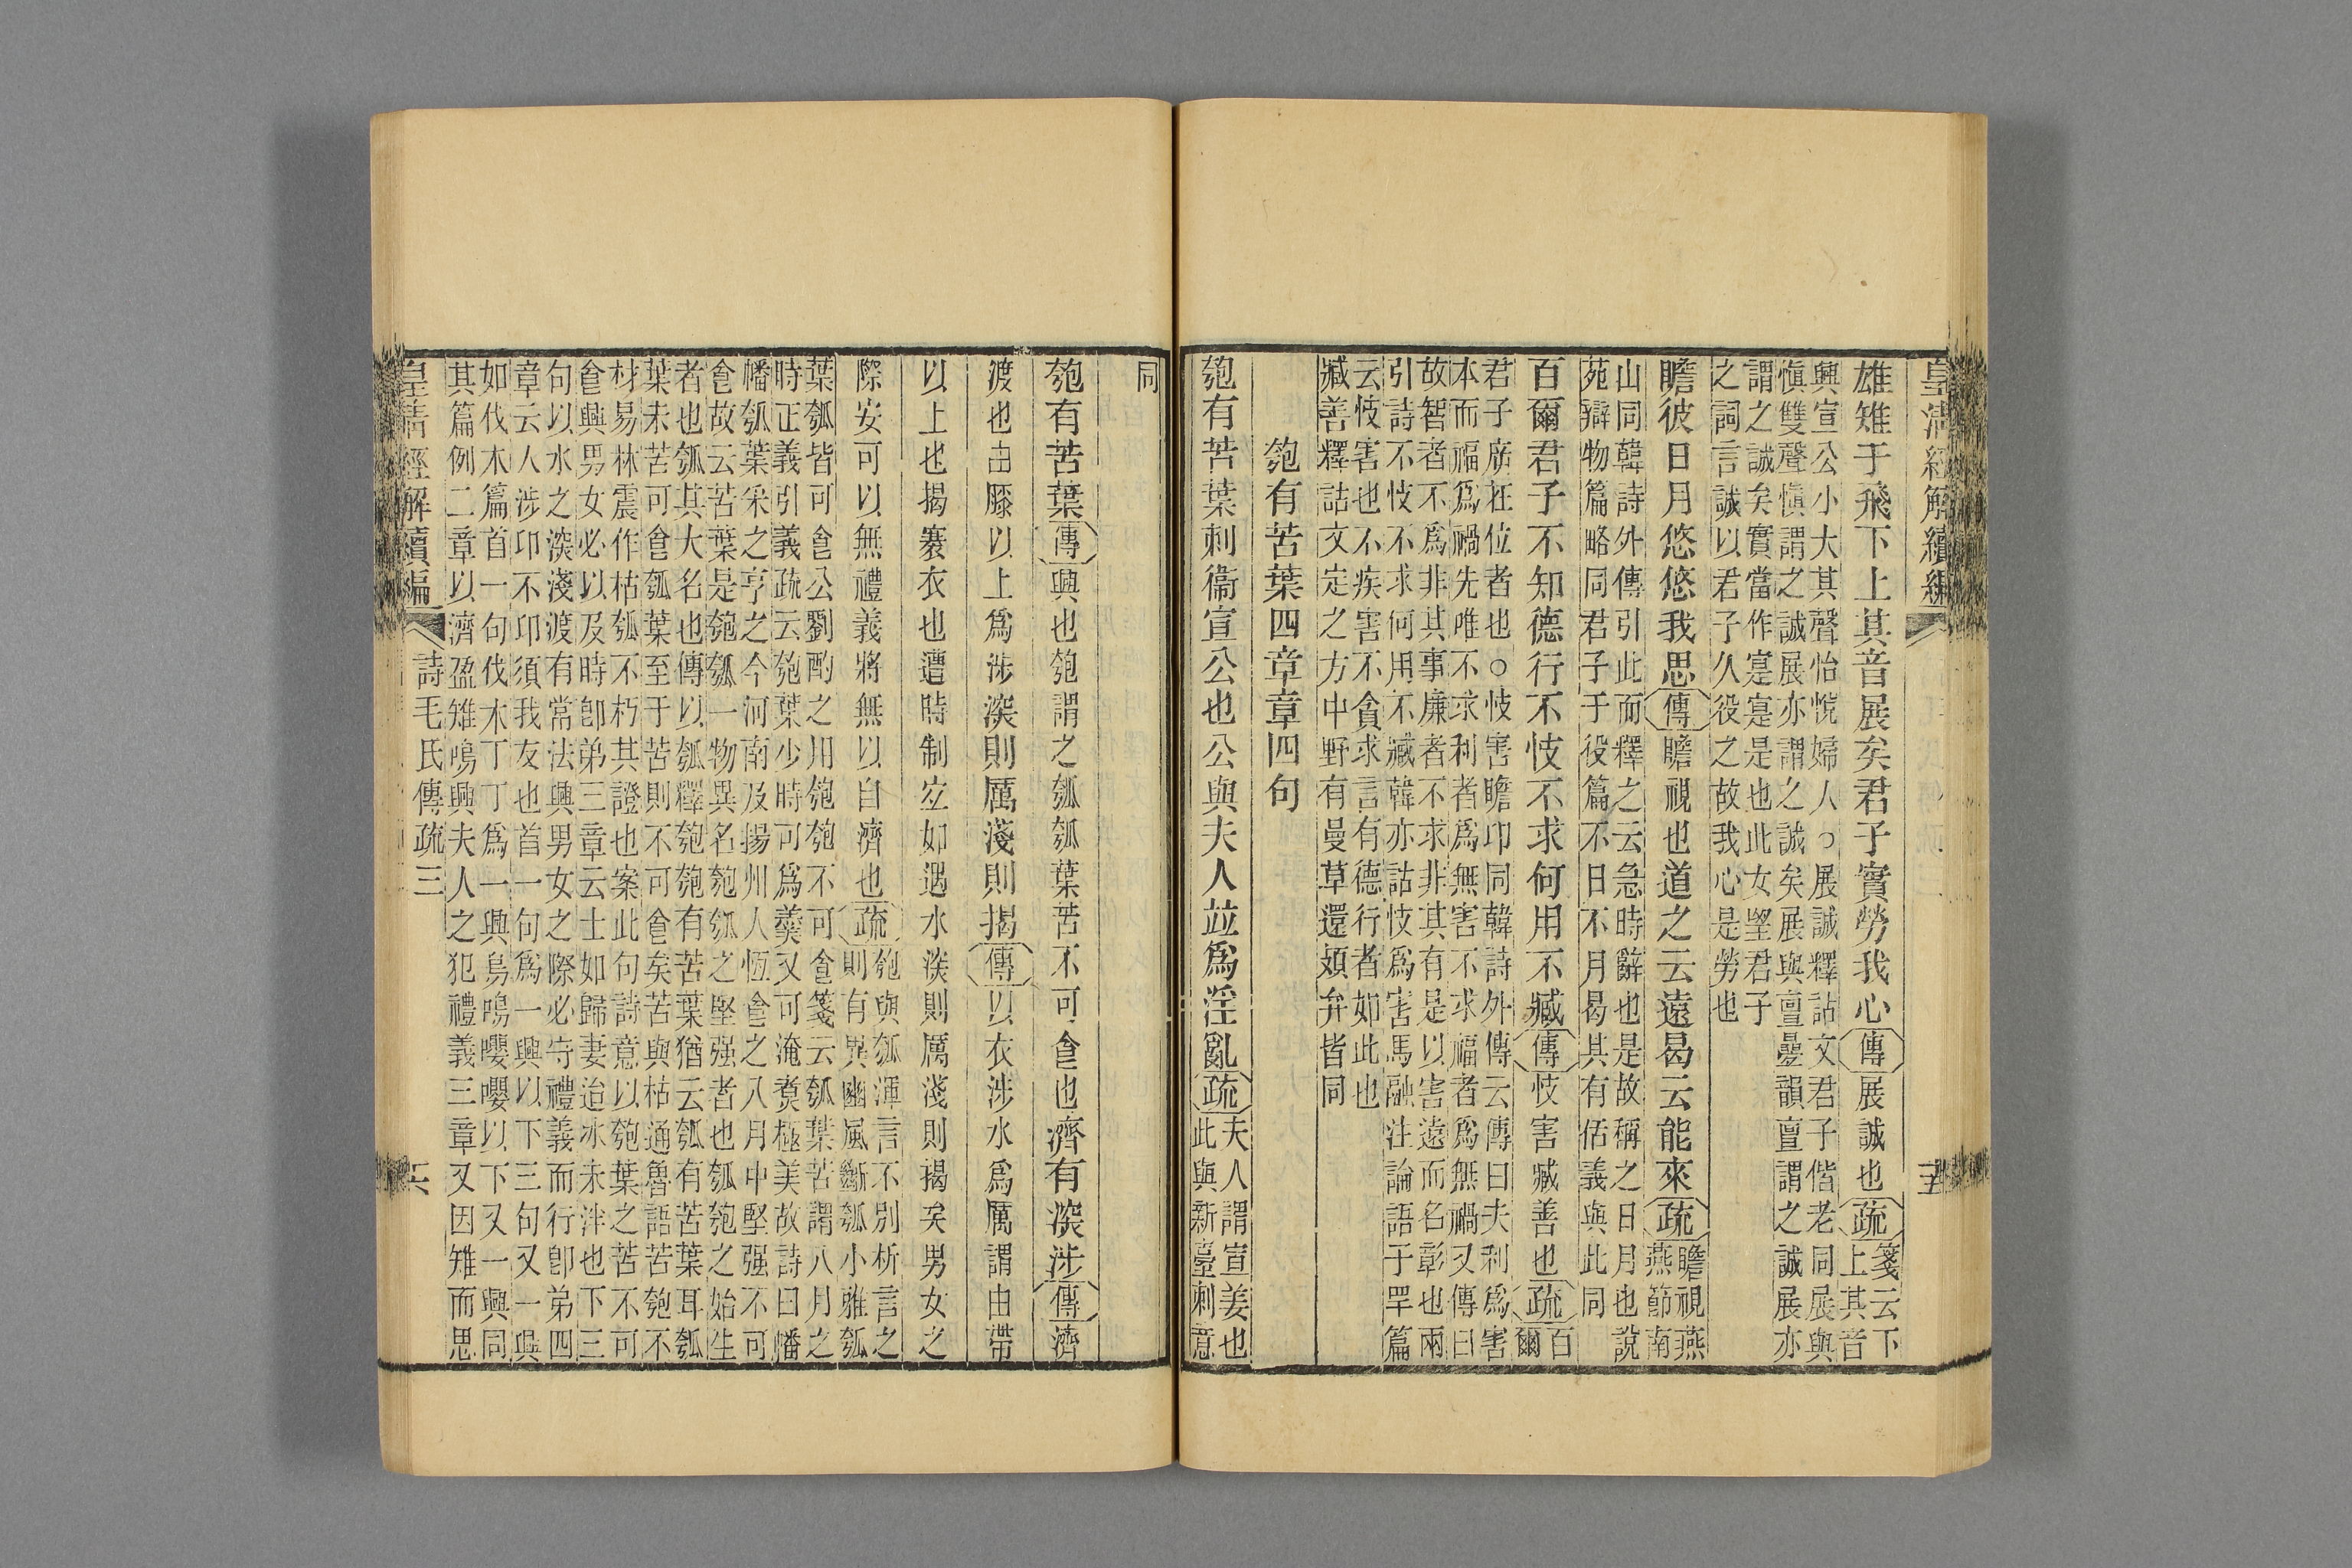 皇清經解續編
雄雉于飛下上其音展矣君子實勞我心傳展誠也疏箋云下上其音
興宣公小大其聲怡悅婦人○展誠釋詁文君子偕老同展與
愼雙聲愼謂之誠展亦謂之誠矣展與亶曡韻亶謂之誠展亦
謂之誠矣實當作寔寔是也此女朢君子
之詞言誠以君子久役之故我心是勞也
瞻彼日月悠悠我思傳瞻視也道之云遠曷云能來疏瞻視燕燕節南
山同韓詩外傳引此而釋之云急時辭也是故稱之日月也說
苑辯物篇略同君子于役篇不日不月曷其有佸義與此同
百爾君子不知德行不忮不求何用不臧傳忮害臧善也疏百爾
君子廣在位者也○忮害瞻卬同韓詩外傳云傳曰夫利爲害
本而福爲禍先唯不求利者爲無害不求福者爲無禍又傳曰
故智者不爲非其事廉者不求非其有是以害遠而名彰也兩
引詩不忮不求何用不臧韓亦詁忮爲害馬融注論語于罕篇
云忮害也不疾害不貪求言有德行者如此也
臧善釋詁文定之方中野有曼草還頍弁皆同
匏有苦葉四章章四句
匏有苦葉刺衞宣公也公與夫人竝爲淫亂疏夫人謂宣姜也此與新臺刺意
同
匏有苦葉傳興也匏謂之瓠瓠葉苦不可食也濟有深涉傳濟
渡也由膝以上爲涉深則厲淺則揭傳以衣涉水爲厲謂由帶
以上也揭褰衣也遭時制宐如遇水深則厲淺則揭矣男女之
際安可以無禮義將無以自濟也疏匏與瓠渾言不別析言之則有異豳風斷瓠小雅瓠
葉瓠皆可食公劉酌之用匏匏不可食箋云瓠葉苦謂八月之
時正義引義疏云匏葉少時可爲羹又可淹煑極美故詩曰幡
幡瓠葉采之亨之今河南及揚州人恆食之八月中堅强不可
食故云苦葉是匏瓠一物異名匏瓠之堅强者也瓠匏之始生
者也瓠其大名也傳以瓠釋匏匏有苦葉猶云瓠有苦葉耳瓠
葉未苦可食瓠葉至于苦則不可食矣苦與枯通魯語苦匏不
材易林震作枯瓠不朽其證也案此句詩意以匏葉之苦不可
食興男女必以及時卽弟三章云士如歸妻迨冰未泮也下三
句以水之深淺渡有常法興男女之際必守禮義而行卽弟四
章云人涉卬不卬須我友也首一句爲一興以下三句又一興
如伐木篇首一句伐木丁丁爲一興鳥鳴嚶嚶以下又一興同
其篇例二章以濟盈雉鳴興夫人之犯禮義三章又因雉而思
皇清經解續編 詩毛氏傳疏三